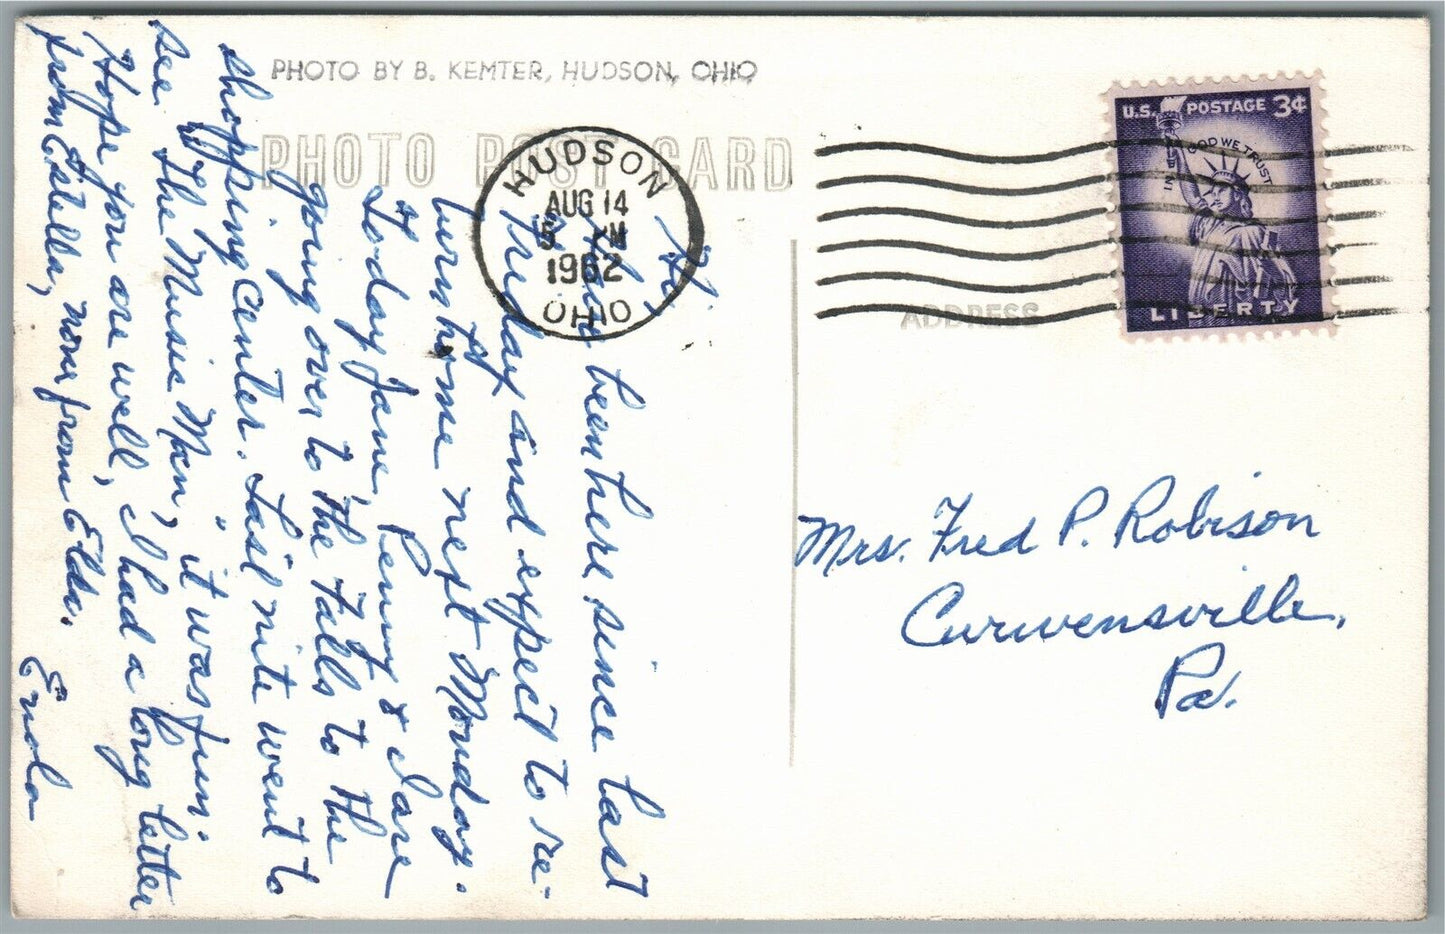 PHOTO BY B. KEMTER, HUDSON, OHIO
PHOTO POST CARD
HUDSON
AUG 14
5 PM
1962
OHIO
U.S. POSTAGE 3¢
IN GOD WE TRUST
LIBERTY
ADDRESS
Hi
been here since last
Friday and expect to re-
turn home next Monday.
Today Jane, Penny & I are
going over to the Falls to the
shopping center. Last nite went to
see "The Music Man," it was fun.
Hope you are well, I had a long letter
from Estella, none from Elda.
Enola
Mrs. Fred P. Robison
Curwensville,
Pa.